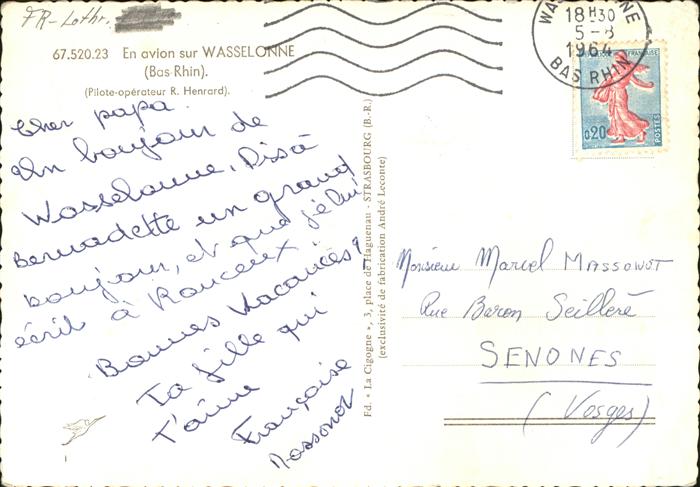 FR-Lothr.
67.520.23 En avion sur WASSELONNE
(Bas-Rhin).
(Pilote-opérateur R. Henrard).
Cher papa.
Un bonjour de
Wasselonne. Dis à
Bernadette un grand
bonjour, et que j'élui
écrit à Ranceux
Bonnes Vacances ?
Ta fille qui
t'aime
Françoise
Massonot
Ed. « La Cigogne », 3, place de Haguenau - STRASBOURG (B.-R.)
(exclusivité de fabrication André Leconte)
18H30
5-8
1964
BAS RHIN
FRANÇAISE
0,20
POSTES
Monsieur Marcel MASSONOT
Rue Baron Seilleré
SENONES
(Vosges)